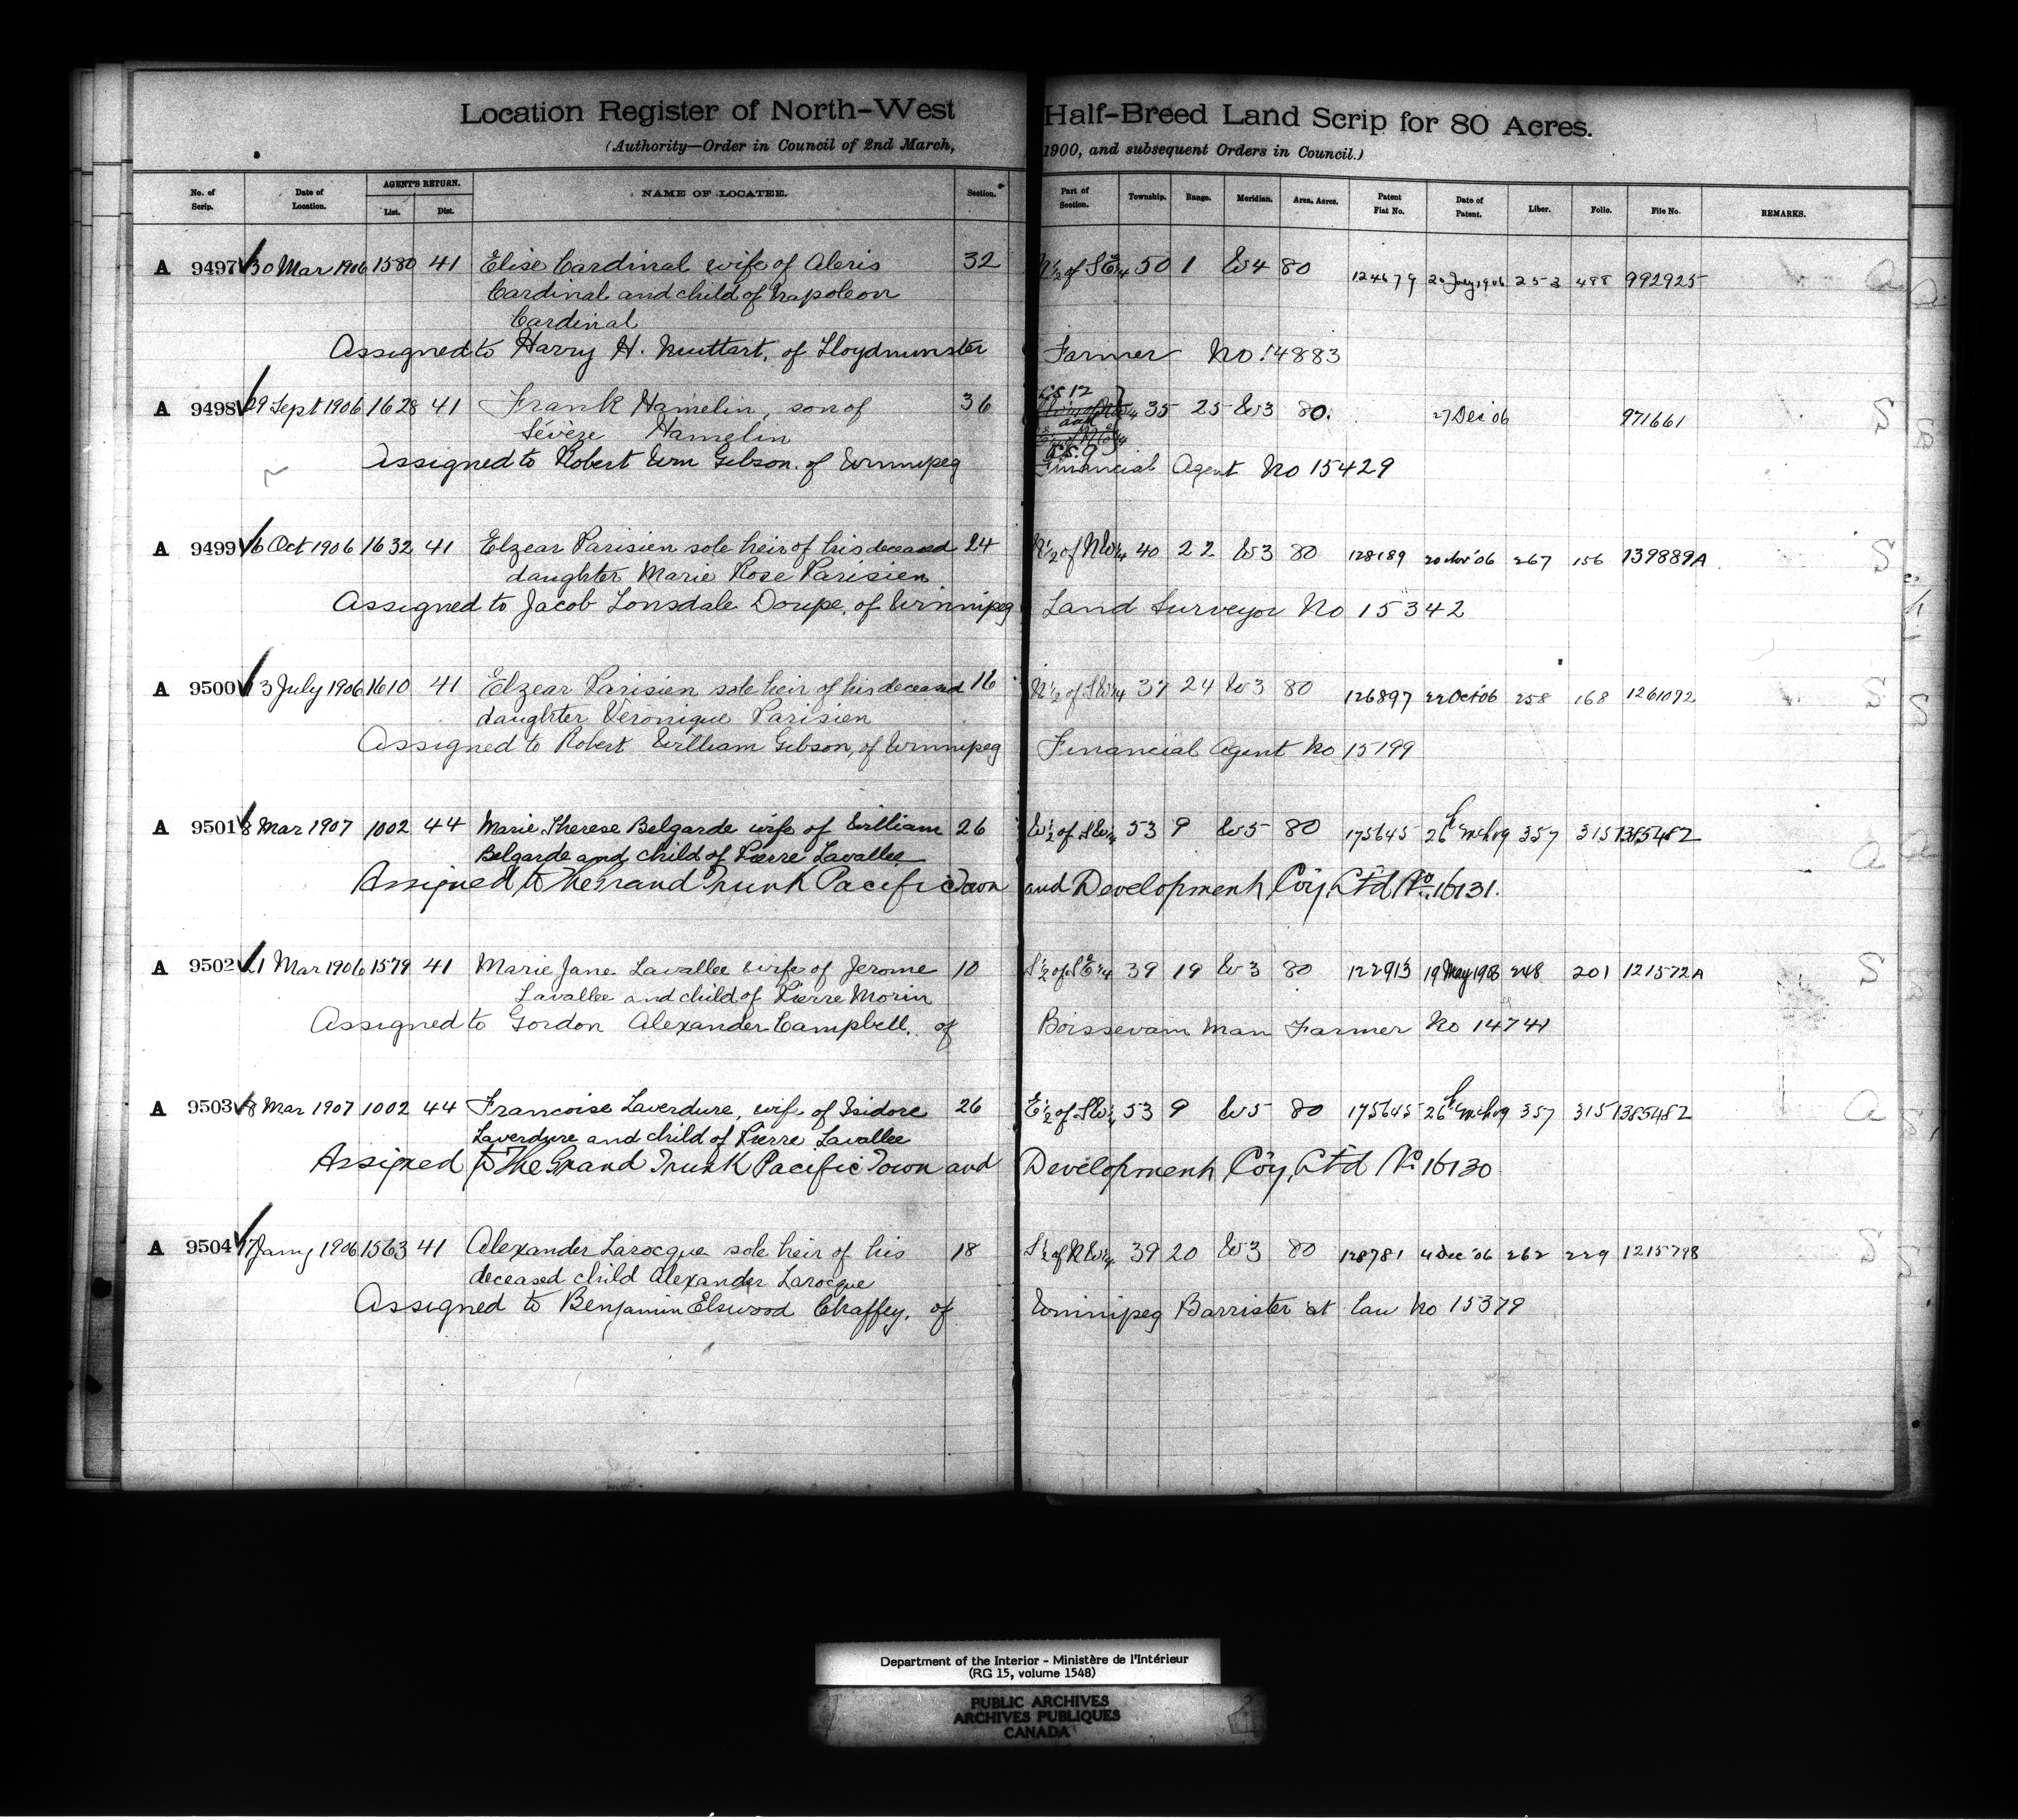 Location Register of North-West Half-Breed Land Scrip for 80 Acres.
(Authority—Order in Council of 2nd March, 1900, and subsequent Orders in Council.)
No. of Scrip. Date of Location. AGENT'S RETURN. List. Dist. NAME OF LOCATEE. Section. Part of Section. Township. Range. Meridian. Area, Acres. Patent Fiat No. Date of Patent. Liber. Folio. File No. REMARKS.
A 9497 30 Mar 1906 1580 41 Elise Cardinal wife of Alexis 32 N½ of SE¼ 50 1 W4 80 124679 1906 253 488 992925 a
Cardinal and child of Napoleon
Cardinal
Assigned to Harry H. of Lloydminster Farmer No 14883
A 9498 29 Sept 1906 1628 41 Frank Hamelin, son of 36 LS 12 35 25 W3 80. 27 Dec 06 971661 S
Sévère Hamelin and
LS. 9
Assigned to Robert Wm Gibson. of Winnipeg Financial Agent No 15429
A 9499 16 Oct 1906 1632 41 Elzear Parisien sole heir of his deceased 24 N½ of NW¼ 40 22 W3 80 128189 20 Nov '06 267 156 139889A S
daughter Marie Rose Parisien
Assigned to Jacob Lonsdale Doupe, of Winnipeg Land Surveyor No 15342
A 9500 13 July 1906 1610 41 Elzear Parisien sole heir of his deceased 16 N½ of SW¼ 37 24 W3 80 126897 22 Oct 06 258 168 1261092 S
daughter Veronique Parisien
Assigned to Robert William Gibson, of Winnipeg Financial Agent No 15199
A 9501 8 Mar 1907 1002 44 Marie Therese Belgarde wife of William 26 W½ of SW¼ 53 9 W5 80 175645 26 Mch 09 357 315 1385482 a
Belgarde and child of Pierre Lavallee
Assigned to The Grand Trunk Pacific Town and Development Coy, Ltd No. 16131.
A 9502 21 Mar 1906 1579 41 Marie Jane Lavallee wife of Jerome 10 S½ of SE¼ 39 19 W3 80 122913 19 May 248 201 121572A S
Lavallee and child of Pierre Morin
Assigned to Gordon Alexander Campbell. of Boissevain Man Farmer No 14741
A 9503 8 Mar 1907 1002 44 Francoise Laverdure, wife of Isidore 26 E½ of SW¼ 53 9 W5 80 175645 26 Mch 09 357 315 1385482 a
Laverdure and child of Pierre Lavallee
Assigned to The Grand Trunk Pacific Town and Development Coy, Ltd No 16130
A 9504 17 Jany 1906 1563 41 Alexander Larocque sole heir of his 18 S½ of NW¼ 39 20 W3 80 128781 4 Dec '06 262 229 1215798 S
deceased child Alexander Larocque
Assigned to Benjamin Elswood Chaffey. of Winnipeg Barrister at law No 15379
Department of the Interior - Ministère de l'Intérieur
(RG 15, volume 1548)
PUBLIC ARCHIVES
ARCHIVES PUBLIQUES
CANADA